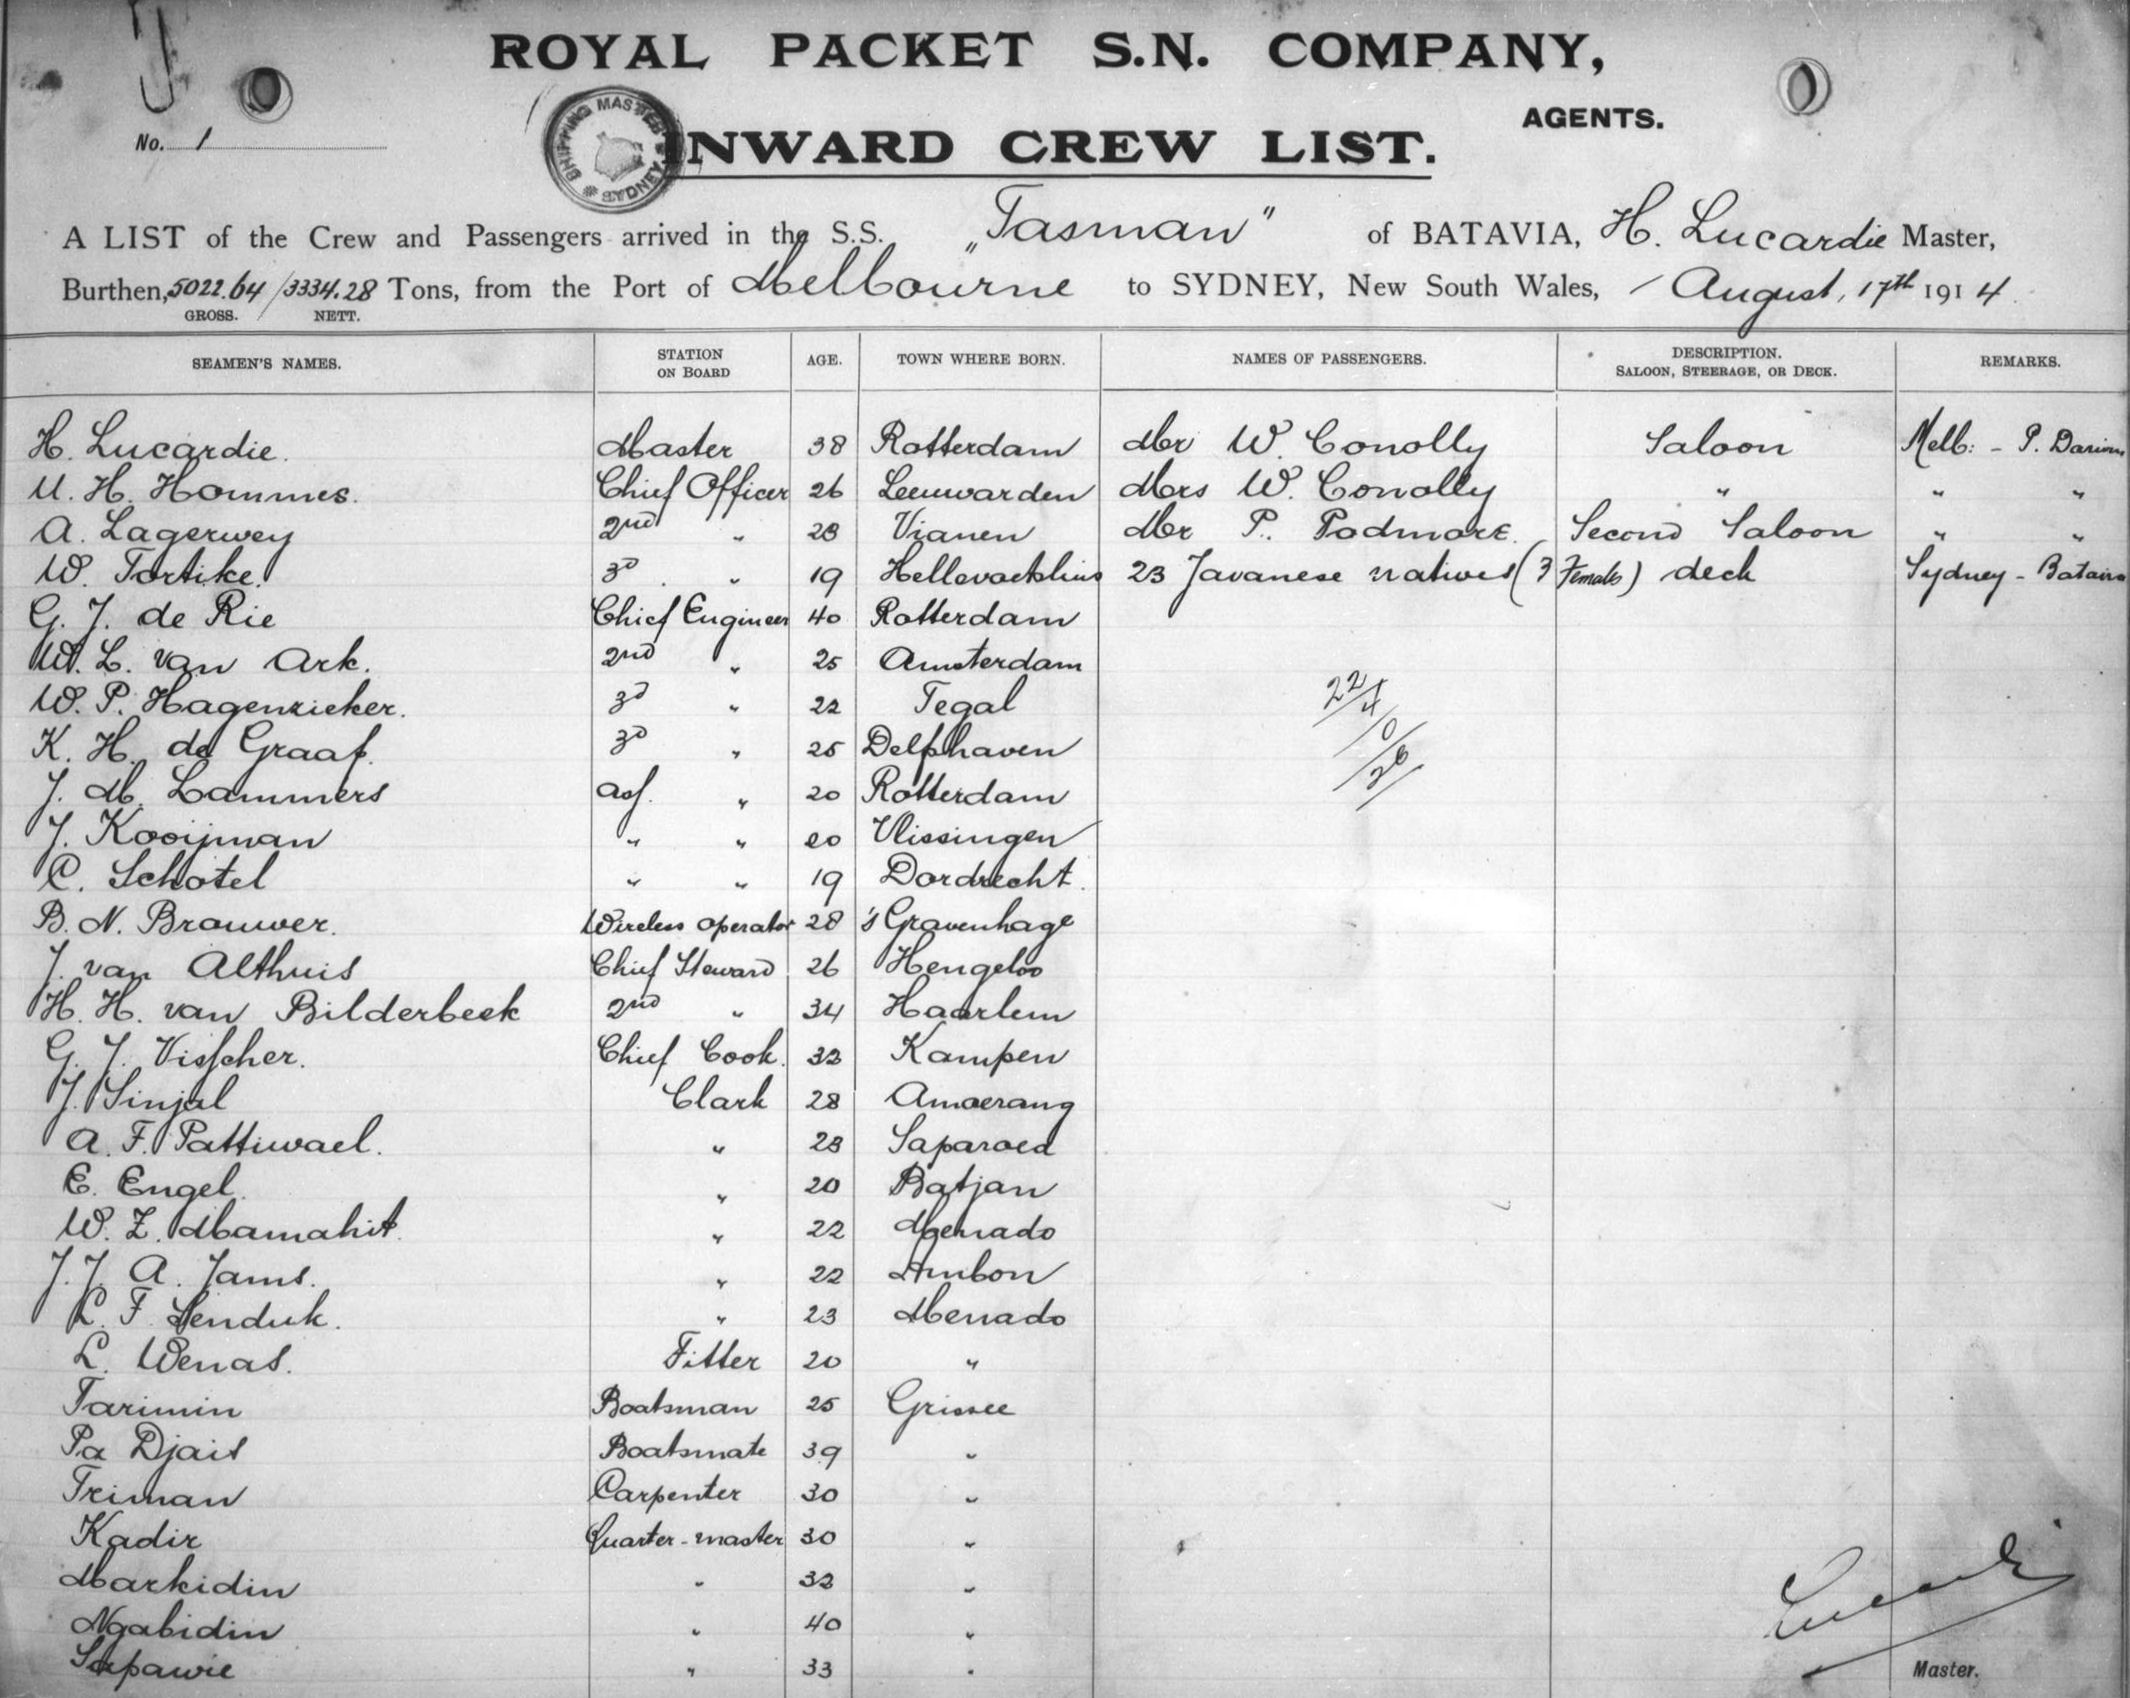 ROYAL PACKET S.N. COMPANY,
AGENTS.
No. 1
SHIPPING MASTER SYDNEY
INWARD CREW LIST.
A LIST of the Crew and Passengers arrived in the S.S. „Tasman" of BATAVIA, H. Lucardie Master,
Burthen, 5022.64 / 3334.28 Tons, from the Port of Melbourne to SYDNEY, New South Wales, August, 17th 1914
GROSS. NETT.
SEAMEN'S NAMES. STATION ON BOARD AGE. TOWN WHERE BORN. NAMES OF PASSENGERS. DESCRIPTION. SALOON, STEERAGE, OR DECK. REMARKS.
H. Lucardie. Master 38 Rotterdam Mr W. Conolly Saloon Melb: - P. Darwin
U. H. Hommes. Chief Officer 26 Leeuwarden Mrs W. Conolly " " "
A. Lagerwey 2nd " 23 Vianen Mr P. Padmore. Second Saloon " "
W. Tortike. 3d. " 19 Hellevoetsluis 23 Javanese natives (3 Females) deck Sydney - Batavia
G. J. de Rie Chief Engineer 40 Rotterdam
W. L. van Ark. 2nd " 25 Amsterdam
W. P. Hagenzieker. 3d " 22 Tegal 22/4
K. H. de Graaf. 3d " 25 Delfhaven 0
J. M. Lammers ass. " 20 Rotterdam 26
J. Kooijman " " 20 Vlissingen
C. Schotel " " 19 Dordrecht.
B. N. Brouwer. Wireless operator 28 's Gravenhage
J. van Althuis Chief Steward 26 Hengeloo
H. H. van Bilderbeek 2nd " 34 Haarlem
G. J. Visscher. Chief Cook. 32 Kampen
J. Sinjal Clark 28 Amoerang
A. F. Pattiwael. " 23 Saparoea
E. Engel. " 20 Batjan
W. Z. Mamahit. " 22 Menado
J. J. A. Jams. " 22 Ambon
L. F. Senduk. " 23 Menado
L. Wenas. Fitter 20 "
Tarimin Boatsman 25 Grissee
Pa Djais Boatsmate 39 "
Triman Carpenter 30 "
Kadir Quarter-master 30 "
Markidin " 32 "
Ngabidin " 40 "
Sapawie " 33 "
Lucardie
Master.